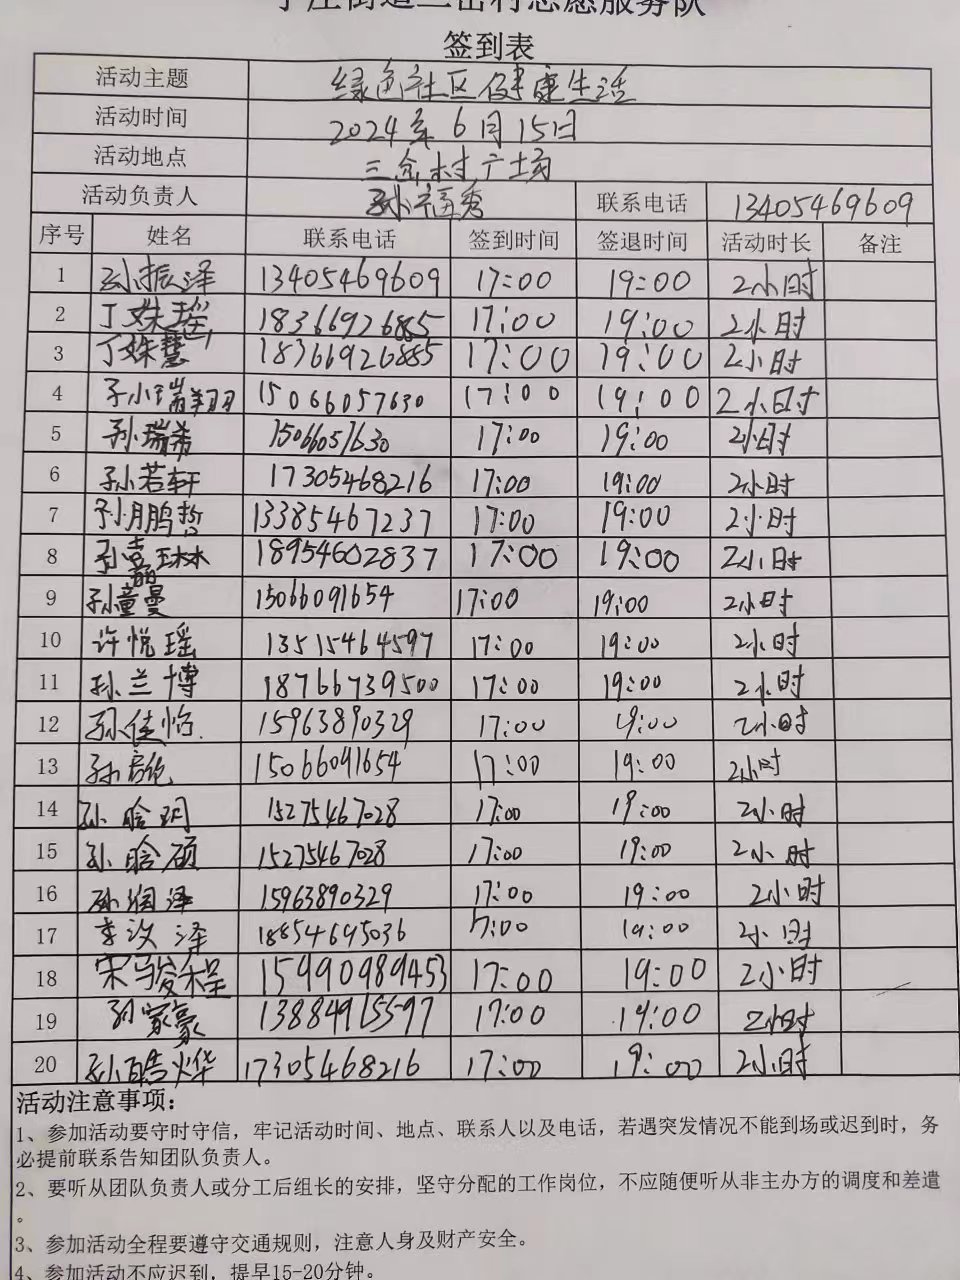 签到表
活动主题 绿色社区健康生活
活动时间 2024年6月15日
活动地点 三合村广场
活动负责人 孙福秀 联系电话 13405469609
序号 姓名 联系电话 签到时间 签退时间 活动时长 备注
1 孙振泽 13405469609 17:00 19:00 2小时
2 丁姝瑶 18366926885 17:00 19:00 2小时
3 丁姝慧 18366926885 17:00 19:00 2小时
4 孙瑞翔 15066057630 17:00 19:00 2小时
5 孙瑞希 15066057630 17:00 19:00 2小时
6 孙若轩 17305468216 17:00 19:00 2小时
7 孙鹏哲 13385467237 17:00 19:00 2小时
8 孙嘉琳 18954602837 17:00 19:00 2小时
9 孙童曼 15066091654 17:00 19:00 2小时
10 许悦瑶 13515464597 17:00 19:00 2小时
11 孙兰博 18766739500 17:00 19:00 2小时
12 孙佳怡 15963890329 17:00 19:00 2小时
13 孙 15066091654 17:00 19:00 2小时
14 孙晗玥 15275467028 17:00 19:00 2小时
15 孙晗硕 15275467028 17:00 19:00 2小时
16 孙润泽 15963890329 17:00 19:00 2小时
17 李汶泽 18854695036 17:00 19:00 2小时
18 宋骏程 15990989453 17:00 19:00 2小时
19 孙家豪 13884915597 17:00 19:00 2小时
20 孙皓烨 17305468216 17:00 19:00 2小时
活动注意事项：
1、参加活动要守时守信，牢记活动时间、地点、联系人以及电话，若遇突发情况不能到场或迟到时，务
必提前联系告知团队负责人。
2、要听从团队负责人或分工后组长的安排，坚守分配的工作岗位，不应随便听从非主办方的调度和差遣
。
3、参加活动全程要遵守交通规则，注意人身及财产安全。
4、参加活动不应迟到，提早15-20分钟。